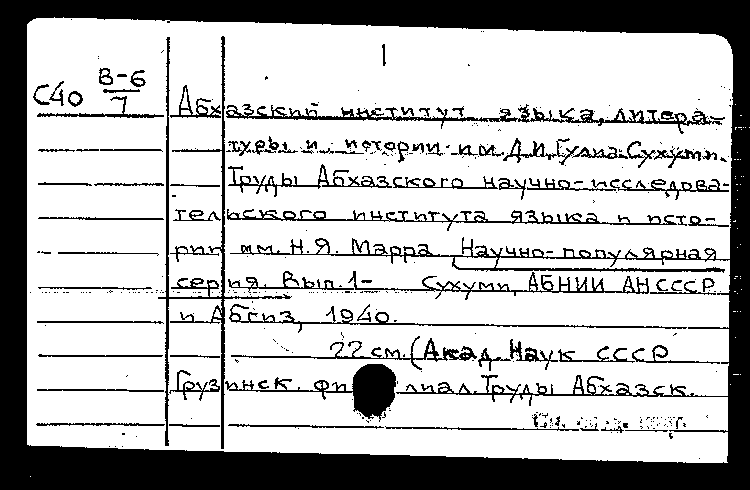 1
С40 В-6/7
Абхазский институт языка, литера-
туры и истории им. Д.И. Гулиа. Сухуми.
Труды Абхазского научно-исследова-
тельского института языка и исто-
рии им. Н.Я. Марра. Научно-популярная
серия. Вып. 1- Сухуми, АБНИИ АН СССР
и Абгиз, 1940.
22 см. (Акад. Наук СССР
Грузинск. филиал. Труды Абхазск.
См. след. карт.